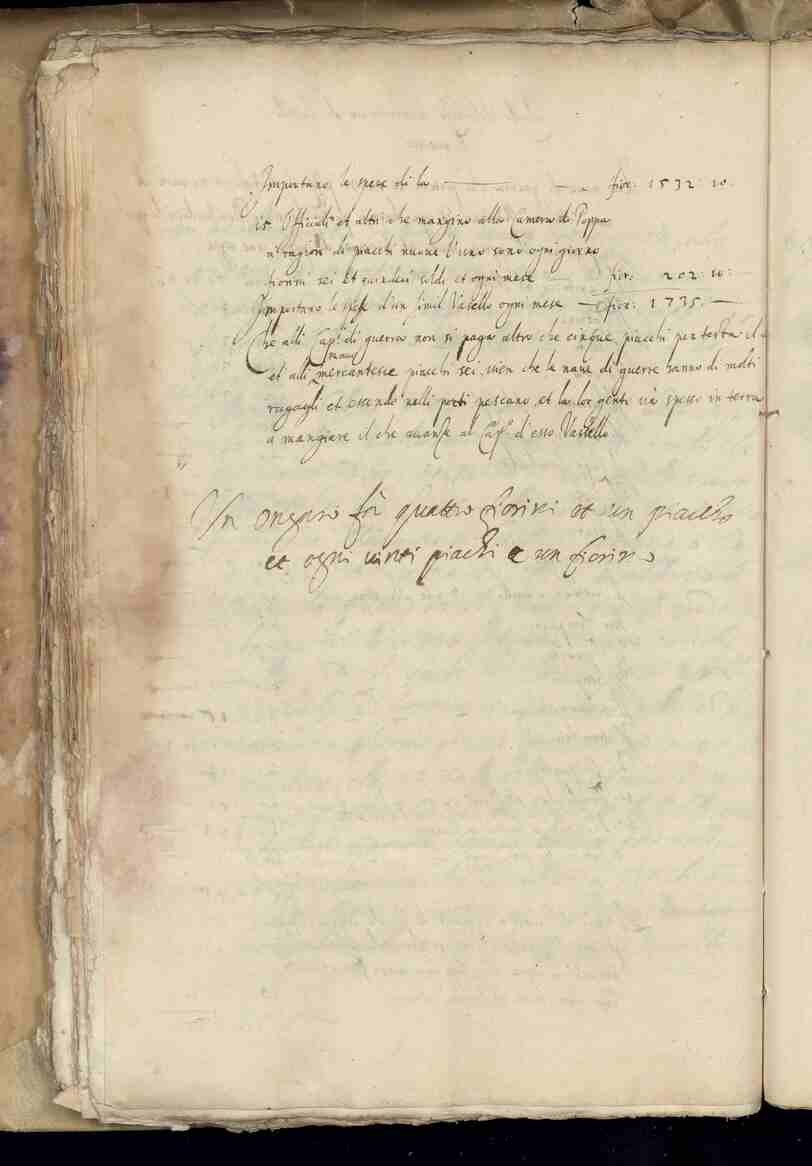 Importano le spese di la — fior: 1532: 10.
15. Officiali et altri che mangino alla Camera di Poppa
a ragion di piacchi nuoue l'uno sono ogni giorno
fiorini sei et quindici soldi et ogni mese — fior: 202: 10:
Importano le spese d'un simil Vasello ogni mese — fior: 1735. —
Che alli Capi. di guerra non si paga altro che cinque piacchi per testa il
et alli naui mercantesce piacchi sei, uien che le naue di guerre hanno di molti
ragagli et essendo nelli porti pescano, et la lor gente uà spesso in terra
a mangiare il che auanse al Capo. d'esso Vassello
Un ongaro fà quattro fiorini et un piacho
et ogni uinti piachi e un fiorino